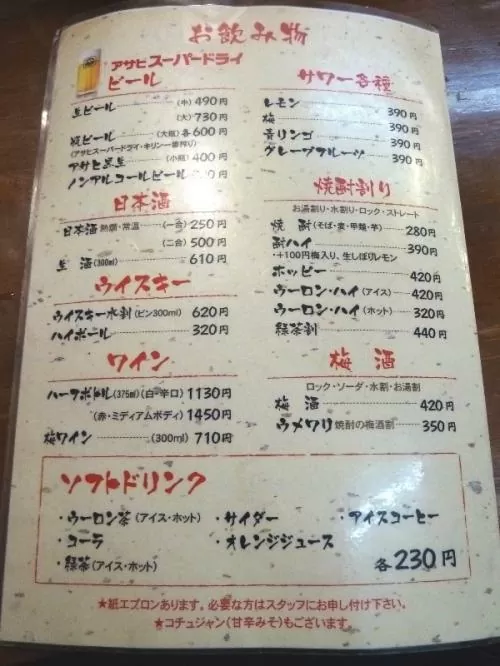 お飲み物
アサヒスーパードライ
ビール
生ビール (中) 490円
(大) 730円
瓶ビール (大瓶) 各600円
(アサヒスーパードライ・キリン一番搾り)
アサヒ黒生 (小瓶) 400円
ノンアルコールビール
日本酒
日本酒 熱燗・常温 (一合) 250円
(二合) 500円
生酒 (300ml) 610円
ウイスキー
ウイスキー水割 (ビン300ml) 620円
ハイボール 320円
ワイン
ハーフボトル (375ml) (白・辛口) 1130円
(赤・ミディアムボディ) 1450円
梅ワイン (300ml) 710円
サワー各種
レモン 390円
梅 390円
青リンゴ 390円
グレープフルーツ 390円
焼酎割り
お湯割り・水割り・ロック・ストレート
焼酎 (そば・麦・甲類・芋) 280円
酎ハイ 390円
+100円梅入り、生しぼりレモン
ホッピー 420円
ウーロン・ハイ (アイス) 420円
ウーロン・ハイ (ホット) 320円
緑茶割 440円
梅酒
ロック・ソーダ・水割・お湯割
梅酒 420円
ウメワリ 焼酎の梅酒割 350円
ソフトドリンク
・ウーロン茶 (アイス・ホット) ・サイダー ・アイスコーヒー
・コーラ ・オレンジジュース
・緑茶 (アイス・ホット) 各230円
★紙エプロンあります。必要な方はスタッフにお申し付け下さい。
★コチュジャン(甘辛みそ)もございます。